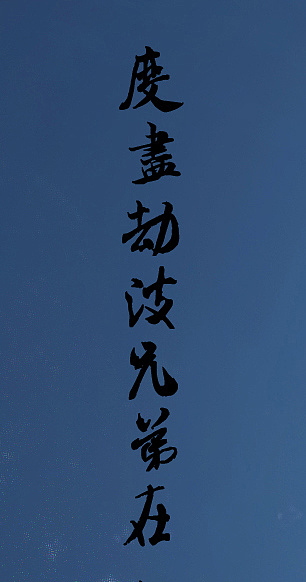 度盡劫波兄弟在